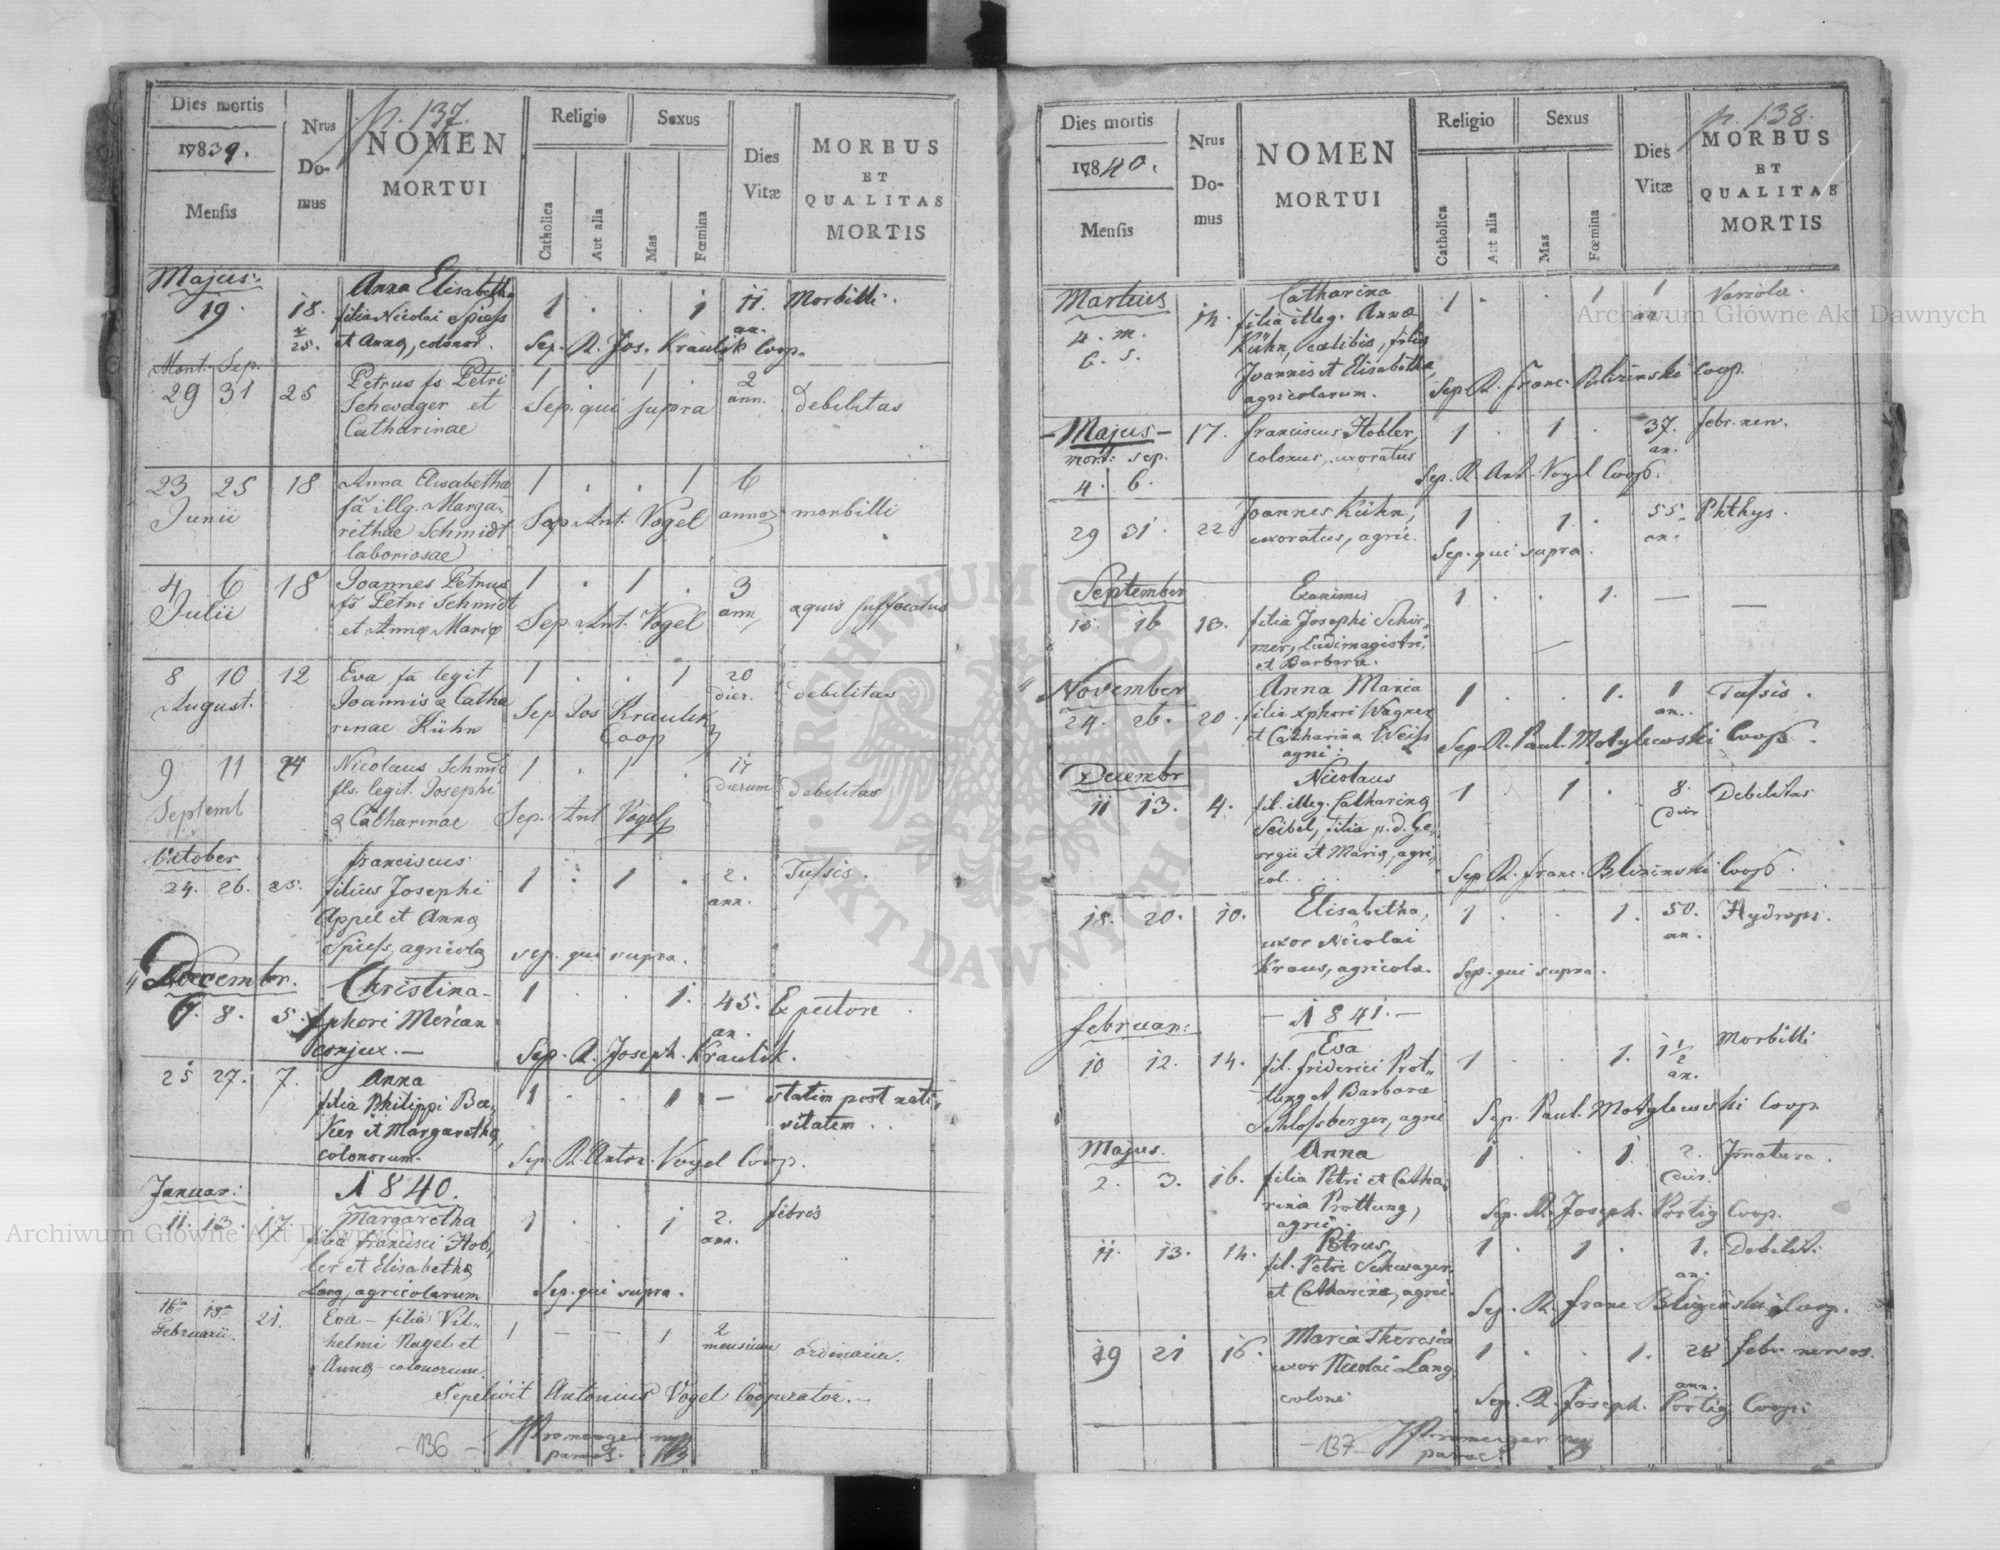 p. 137.
Dies mortis
17839.
Mensis
Nrus
Do-
mus
NOMEN
MORTUI
Religio
Catholica
Aut alia
Sexus
Mas
Fœmina
Dies
Vitæ
MORBUS
ET
QUALITAS
MORTIS
Majus:
19. 18. Anna Elisabetha 1 . . 1 11. Morbilli.
25. filia Nicolai Spiess an.
et Anna, colonor. Sep. R. Jos. Kraulik Coop.
Mort. Sep.
29 31 25 Petrus fs Petri 1 . 1 . 2 debilitas
Schwager et Sep. qui supra ann.
Catharinae
23 25 18 Anna Elisabetha 1 . . 1 6
Junii fa illg. Marga- Sep. Ant. Vogel morbilli
rethae Schmidt
laboriosae
4 6 18 Joannes Petrus 1 . 1 . 3
Julii fs Petri Schmidt ann. aquis suffocatus
et Annæ Mariæ Sep. Ant. Vogel
8 10 12 Eva fa legit 1 . . 1 20
August. Joannis & Catha dier. debilitas
rinae Kühn Sep Jos Kraulik
Coop
9 11 24 Nicolaus Schmid 1 . 1 . 17
Septemb fls. legit. Josephi dierum debilitas
& Catharinae Sep. Ant Vogel
October Franciscus
24. 26. 25. filius Josephi 1 . 1 . 2. Tussis.
Appel et Anna ann.
Spiess, agricola sep. qui supra.
December. Christina
6. 8. 5. Xphori Merian 1 . . 1. 45. E pectore
conjux. an.
Sep. R. Joseph. Kraulik.
25 27. 7. Anna
filia Philippi Be- 1 . . 1 — statim post nati-
ker et Margaretha, vitatem.
colonorum. Sep. R. Anton. Vogel Coop.
Januar: 1840.
11. 13. 17. Margaretha 1 . . 1 2. febris
filia Francisci Hob- ann.
ler et Elisabetha
Lang, agricolarum Sep. qui supra.
16ta 18va 21. Eva — filia Vil-
Februarii. helmi Nagel et 1 — — 1 2
Anna — colonorum. mensium ordinaria.
Sepelivit Antonius Vogel Cooperator.
-136-
p. 138.
Dies mortis
17840.
Mensis
Nrus
Do-
mus
NOMEN
MORTUI
Religio
Catholica
Aut alia
Sexus
Mas
Fœmina
Dies
Vitæ
MORBUS
ET
QUALITAS
MORTIS
Martius Catharina 1 . . 1 1 Variola.
4. m. 14. filia illeg. Annæ an.
6. s. Kühn, cœlibis, filiæ
Joannis et Elisabetha,
agricolarum. Sep. R. Franc. Blizinski Coop.
Majus 17. Franciscus Hobler, 1 . 1 . 37. febr. nerv.
mort: sep. colonus, uxoratus an.
4. 6. Sep. R. Ant. Vogel Coop.
29 31. 22 Joannes Kühn, 1 . 1 . 55. Phthys.
uxoratus, agric. an.
Sep. qui supra.
September Exanimis 1 . . 1. — —
15. 16 13. filia Josephi Schir-
mer, Ludimagistri,
et Barbara.
November Anna Maria 1 . . 1. 1 Tussis.
24. 26. 20. filia Xphori Wagner an.
et Catharina Weiss
agri: Sep. R. Paul. Motylewski Coop.
Decembr Nicolaus
11 13. 4. fil. illeg. Catharina 1 . 1 . 8. Debilitas
Seibel, filia p. d. Ge- dier
orgii et Maria, agri-
col. Sep. R. Franc. Blizinski Coop.
18. 20. 10. Elisabetha, 1 . . 1. 50. Hydrops.
uxor Nicolai an.
Kraus, agricola. Sep. qui supra.
Februar: 1841.
10 12. 14. Eva 1 . . 1. 1½ Morbilli
fil. Friderici Prot- an.
tung et Barbara
Schlossberger, agri Sep. Paul. Motylewski Coop.
Majus. Anna 1 . . 1. 2. Innatura.
2. 3. 16. filia Petri et Catha- dier.
rina Prottung,
agric. Sep. R. Joseph. Portig Coop.
11. 13. 14. Petrus, 1 . 1 . 1. Debilit:
fil. Petri Schwager an.
et Catharina, agric. Sep. R. Franc Blizinski Coop.
19 21 16. Maria Theresia 1 . . 1. 28 febr. nervos.
uxor Nicolai Lang, ann.
coloni Sep. R. Joseph. Portig Coop.
-137-
ARCHIWUM GŁÓWNE AKT DAWNYCH
Archiwum Główne Akt Dawnych
Archiwum Główne Akt Dawnych